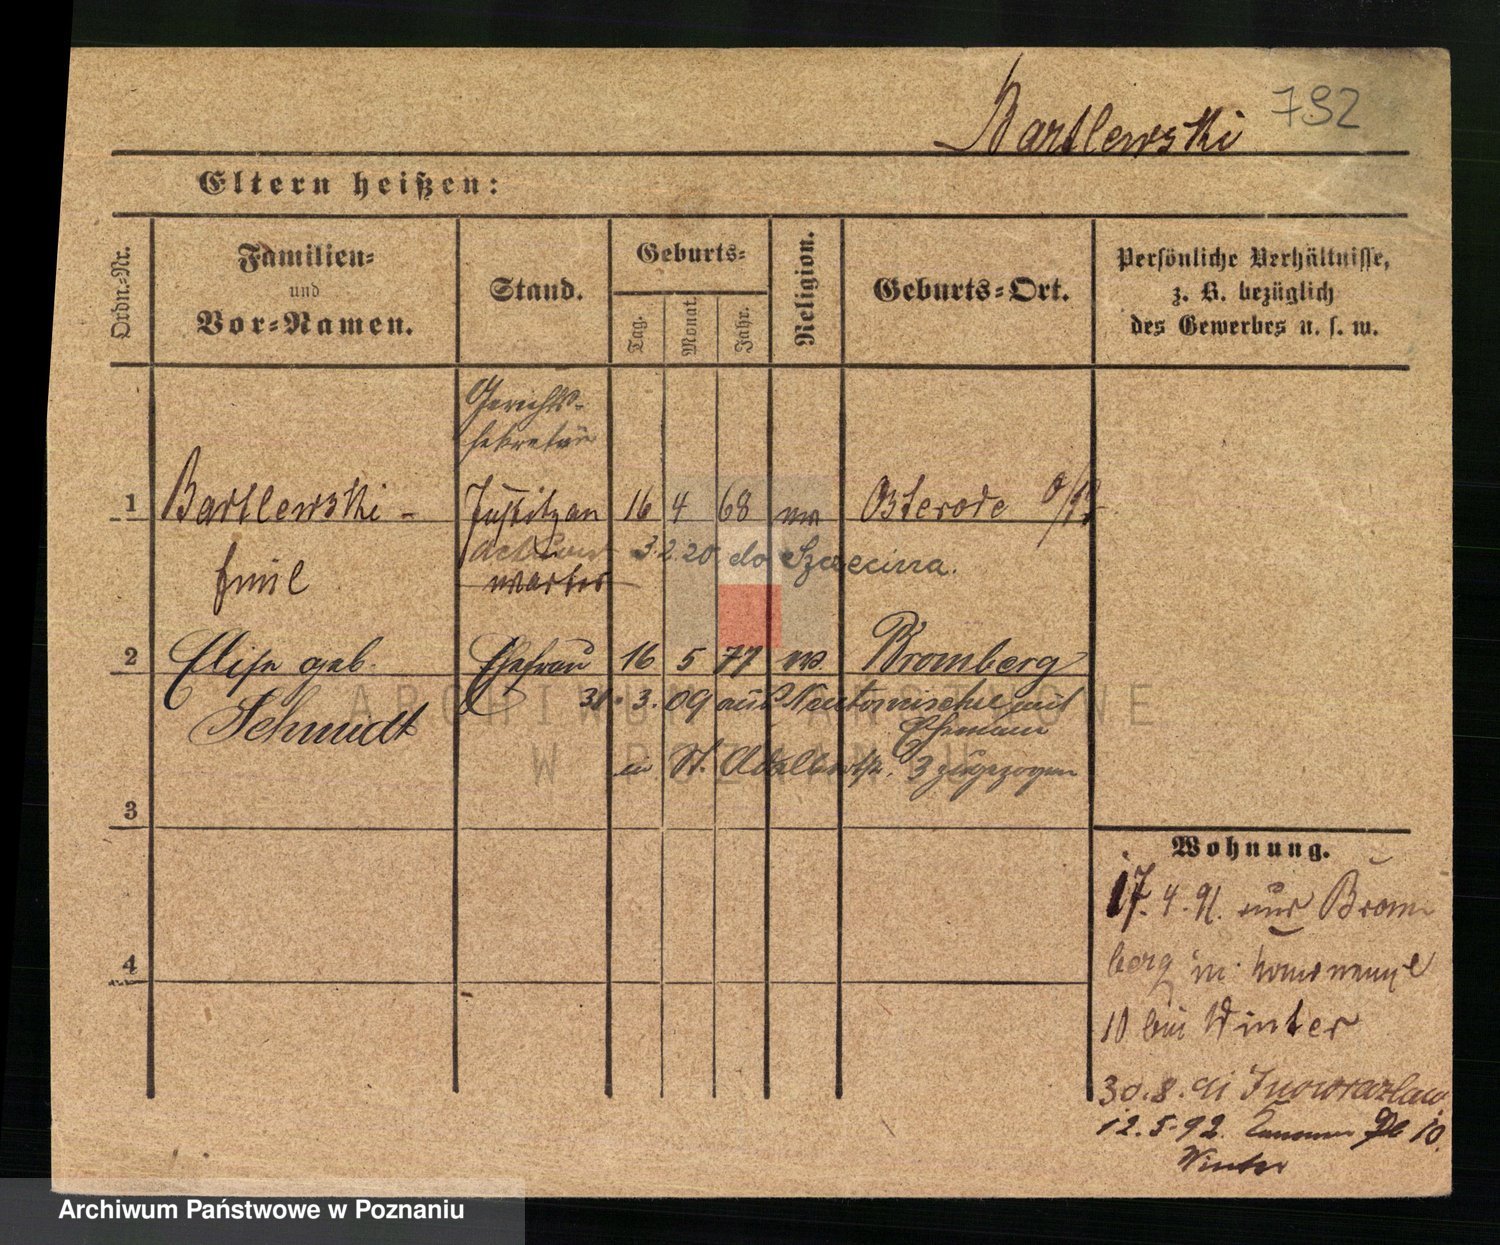 Bartlewski 792
Eltern heißen:
Ordn.-Nr.
Familien-
und
Vor-Namen.
Stand.
Geburts-
Tag.
Monat.
Jahr.
Religion.
Geburts-Ort.
Persönliche Verhältnisse,
z. B. bezüglich
des Gewerbes u. s. w.
Gerichts-
sekretär
1 Bartlewski - Justizan 16 4 68 Osterode
Emil
3.2.20. do Szczecina.
2 Elise geb. Ehefrau 16 5 77 Bromberg
Schmidt
31. 3. 09 aus Neutomischel mit
Ehemann
in St. Adalbertstr. 3 zugezogen
3
4
Wohnung.
17. 4. 91. aus Brom
berg in
10 bei Winter
30. 8. Inowrazlaw
12. 5. 92. 10.
Winter
ARCHIWUM PAŃSTWOWE
W POZNANIU
Archiwum Państwowe w Poznaniu